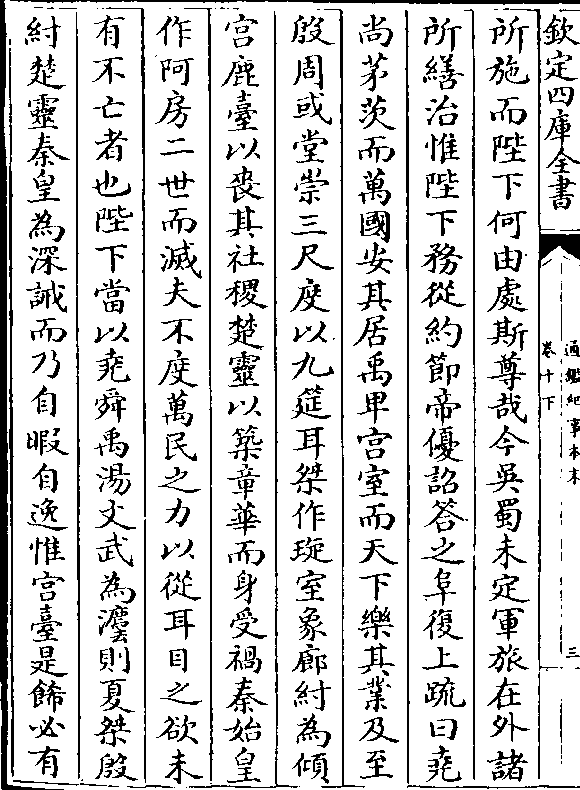 欽定四庫全書
通鑑紀事本末
卷十下
三
所施而陛下何由處斯尊哉今吳蜀未定軍旅在外諸
所繕治惟陛下務從約節帝優詔答之阜復上疏曰堯
尚茅茨而萬國安其居禹卑宫室而天下樂其業及至
殷周或堂崇三尺度以九筵耳桀作琁室象廊紂為傾
宫鹿臺以喪其社稷楚靈以築章華而身受禍秦始皇
作阿房二世而滅夫不度萬民之力以從耳目之欲未
有不亡者也陛下當以堯舜禹湯文武為灋則夏桀殷
紂楚靈秦皇為深誡而乃自暇自逸惟宫臺是飾必有